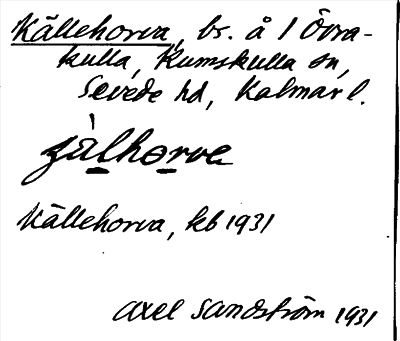 Källehorva, bs. å 1 Övra-
kulla, Rumskulla sn,
Sevede hd, Kalmar l.
jàlhorva
Källehorva, kb 1931
Axel Sandström 1931